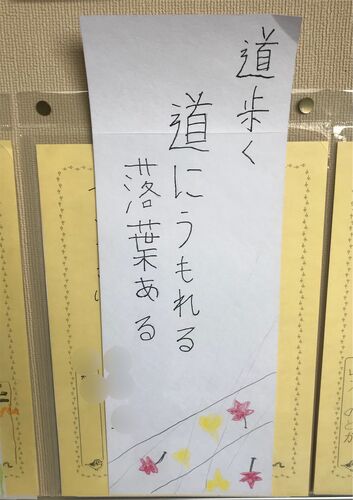 道歩く
道にうもれる
落葉ある